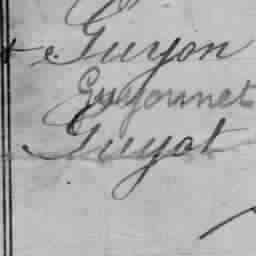 Guyon
Guyonnet
Guyot